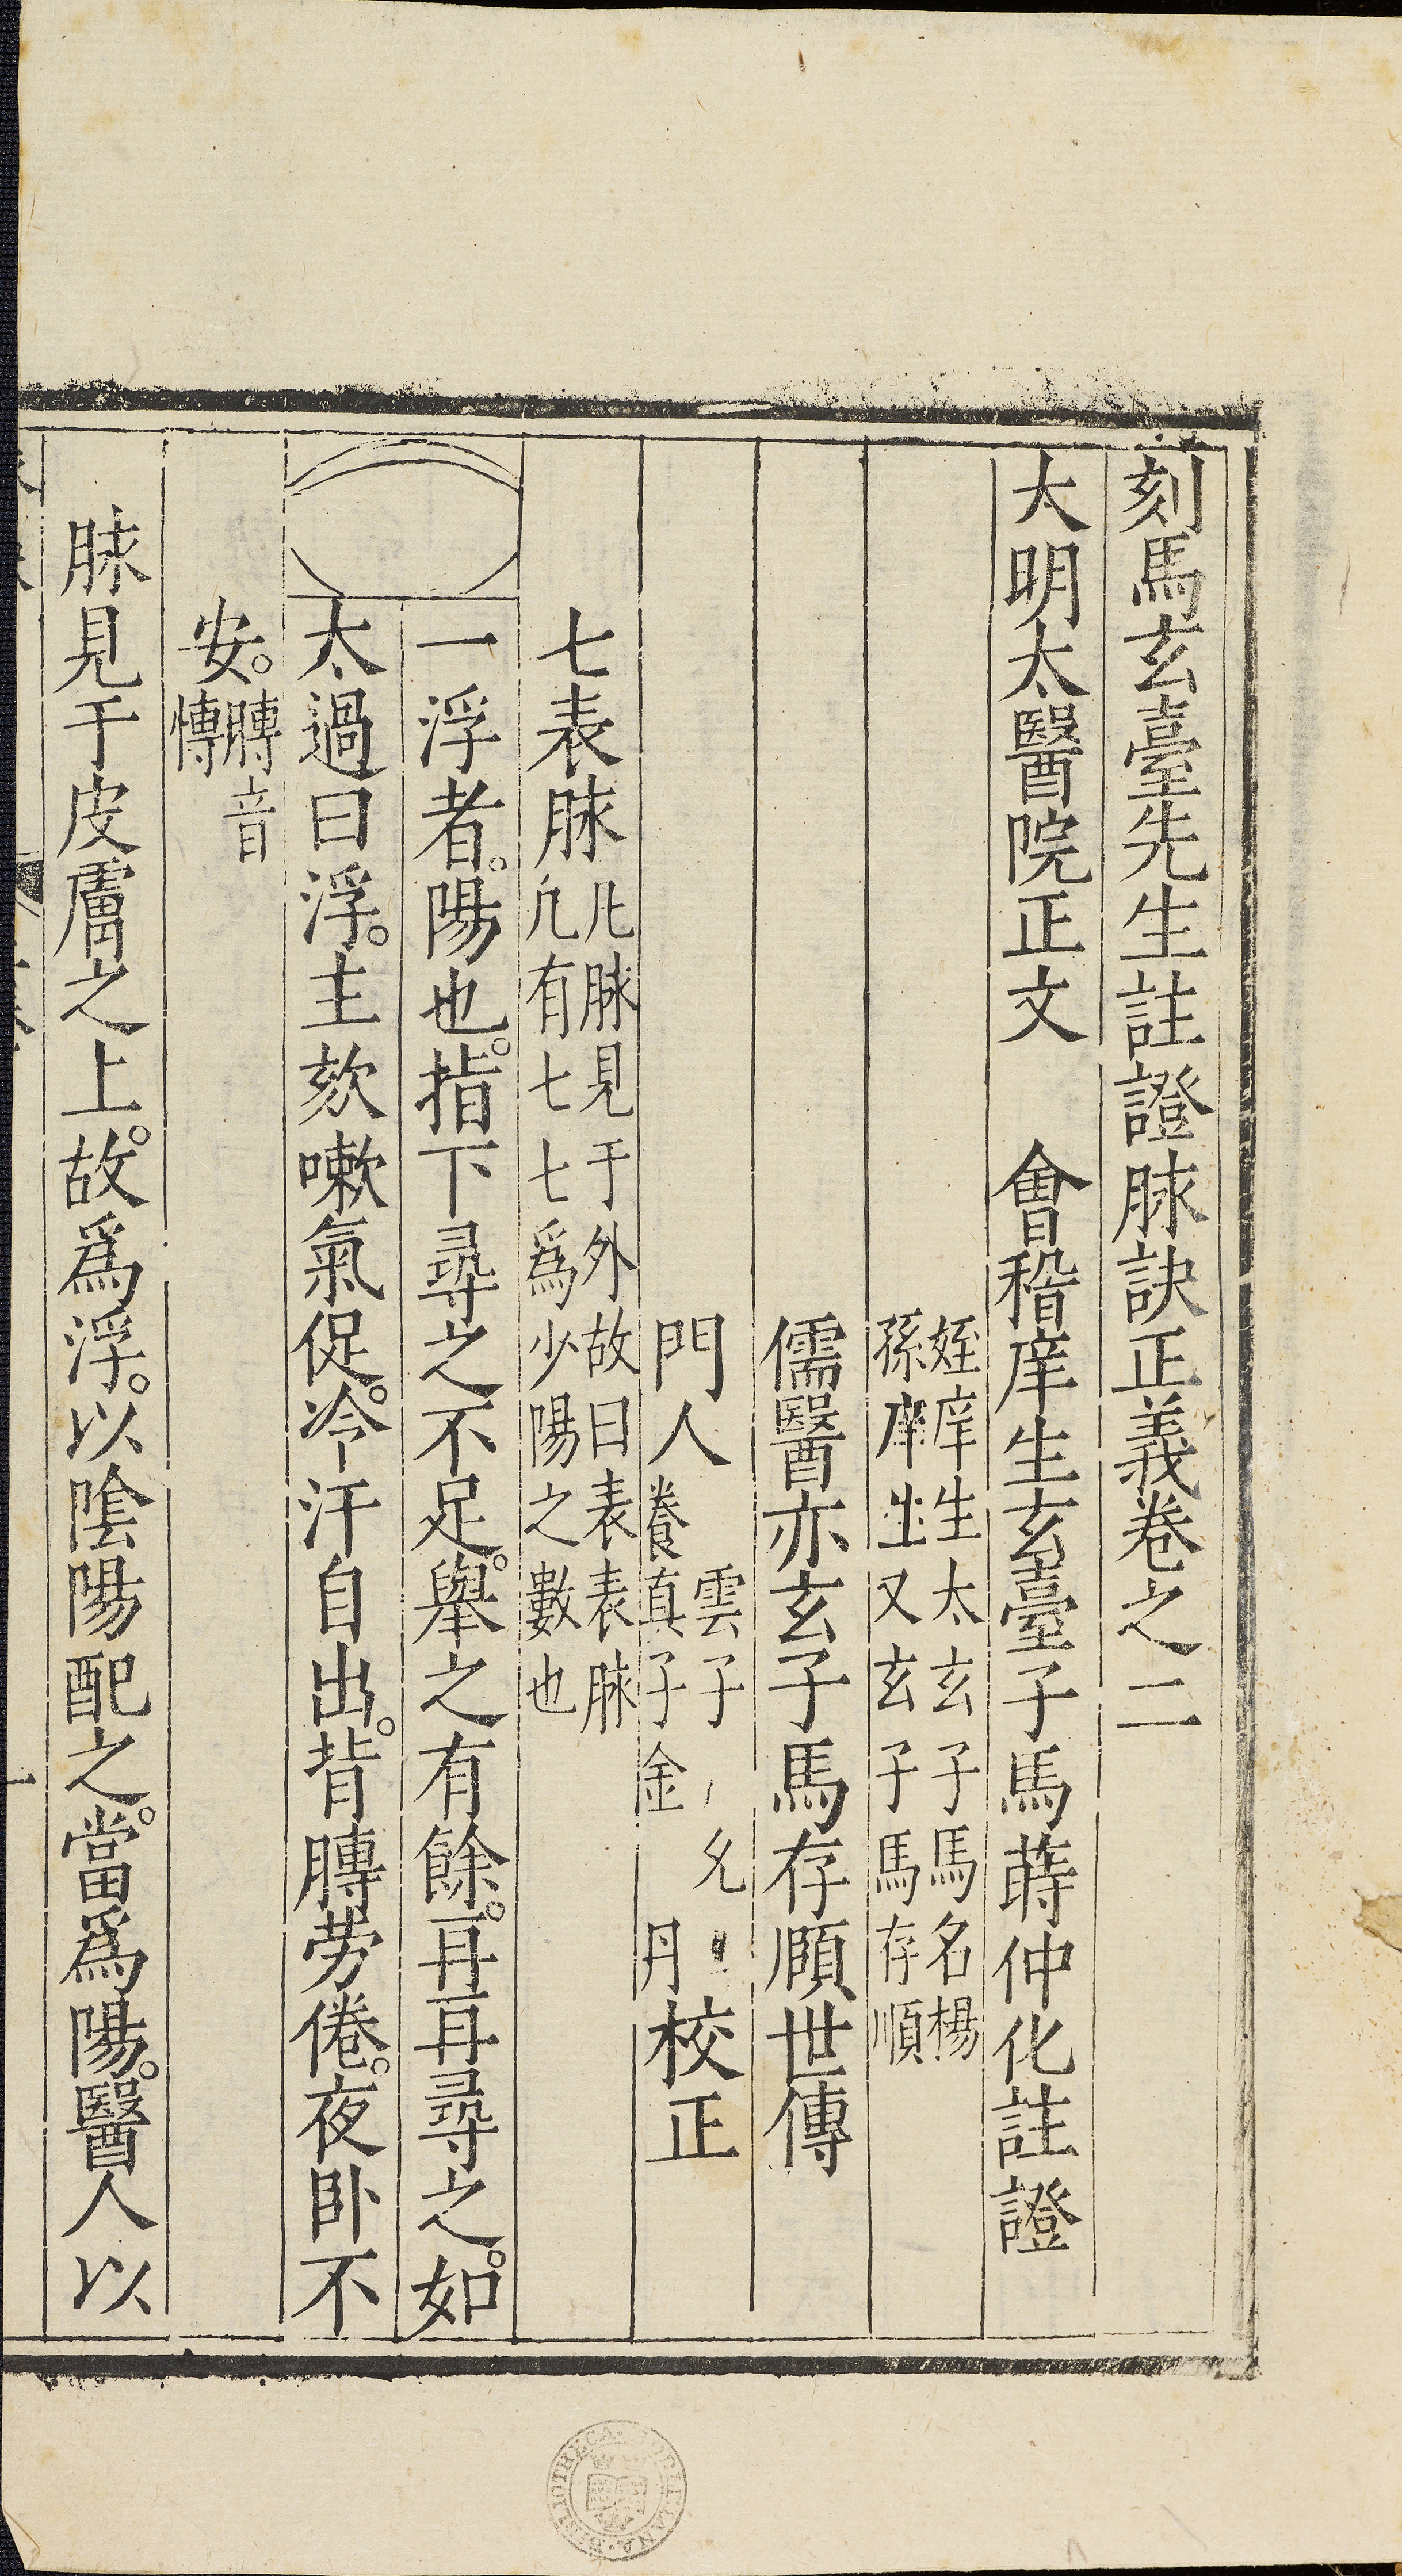 刻馬玄臺先生註證脉訣正義卷之二
大明太醫院正文　會稽庠生玄臺子馬蒔仲化註證
姪庠生太玄子馬名楊
孫庠生又玄子馬存順
儒醫亦玄子馬存願世傳
門人
雲子
養真子金　丹
校正
七表脉
凡脉見于外故曰表表脉
凡有七七爲少陽之數也
一浮者。陽也。指下尋之不足。舉之有餘。再再尋之。如
太過曰浮。主欬嗽氣促。冷汗自出。背膊劳倦。夜卧不
安。
膊音
慱
脉見于皮膚之上。故爲浮。以陰陽配之。當爲陽。醫人以
一